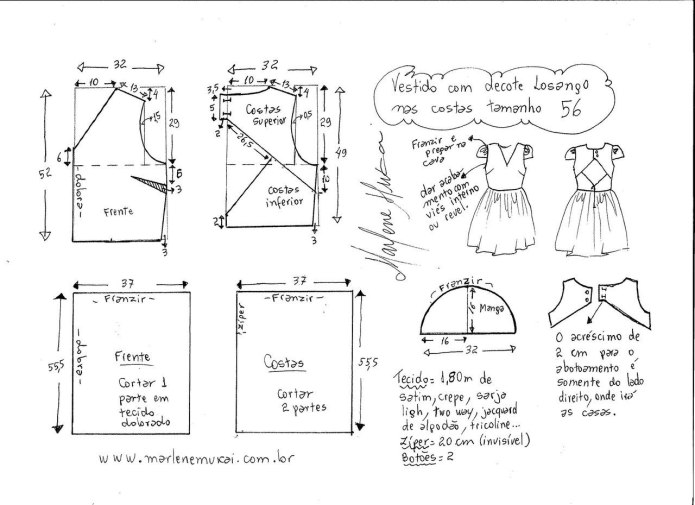 32
10
13
4
15
29
52
6
6
3
dobra
Frente
3
32
3,5
10
13
4
5
Costas
Superior
0,5
29
49
2
26,5
12
3
Costas
inferior
2
3
Vestido com decote Losango
nas costas tamanho 56
Marlene Mukai
Franzir e
pregar na
cava
dar acaba-
mento com
viés interno
ou revel.
37
- Franzir -
55,5
- dobra -
Frente
Cortar 1
parte em
tecido
dobrado
37
- Franzir -
Zíper
55,5
Costas
Cortar
2 partes
www.marlenemukai.com.br
Franzir
16
Manga
16
32
Tecido = 1,80m de
satim, crepe, sarja
ligh, two way, jacquard
de algodão, tricoline...
Zíper = 20 cm (invisível)
Botões = 2
O acréscimo de
2 cm para o
abotoamento é
somente do lado
direito, onde irá
as casas.